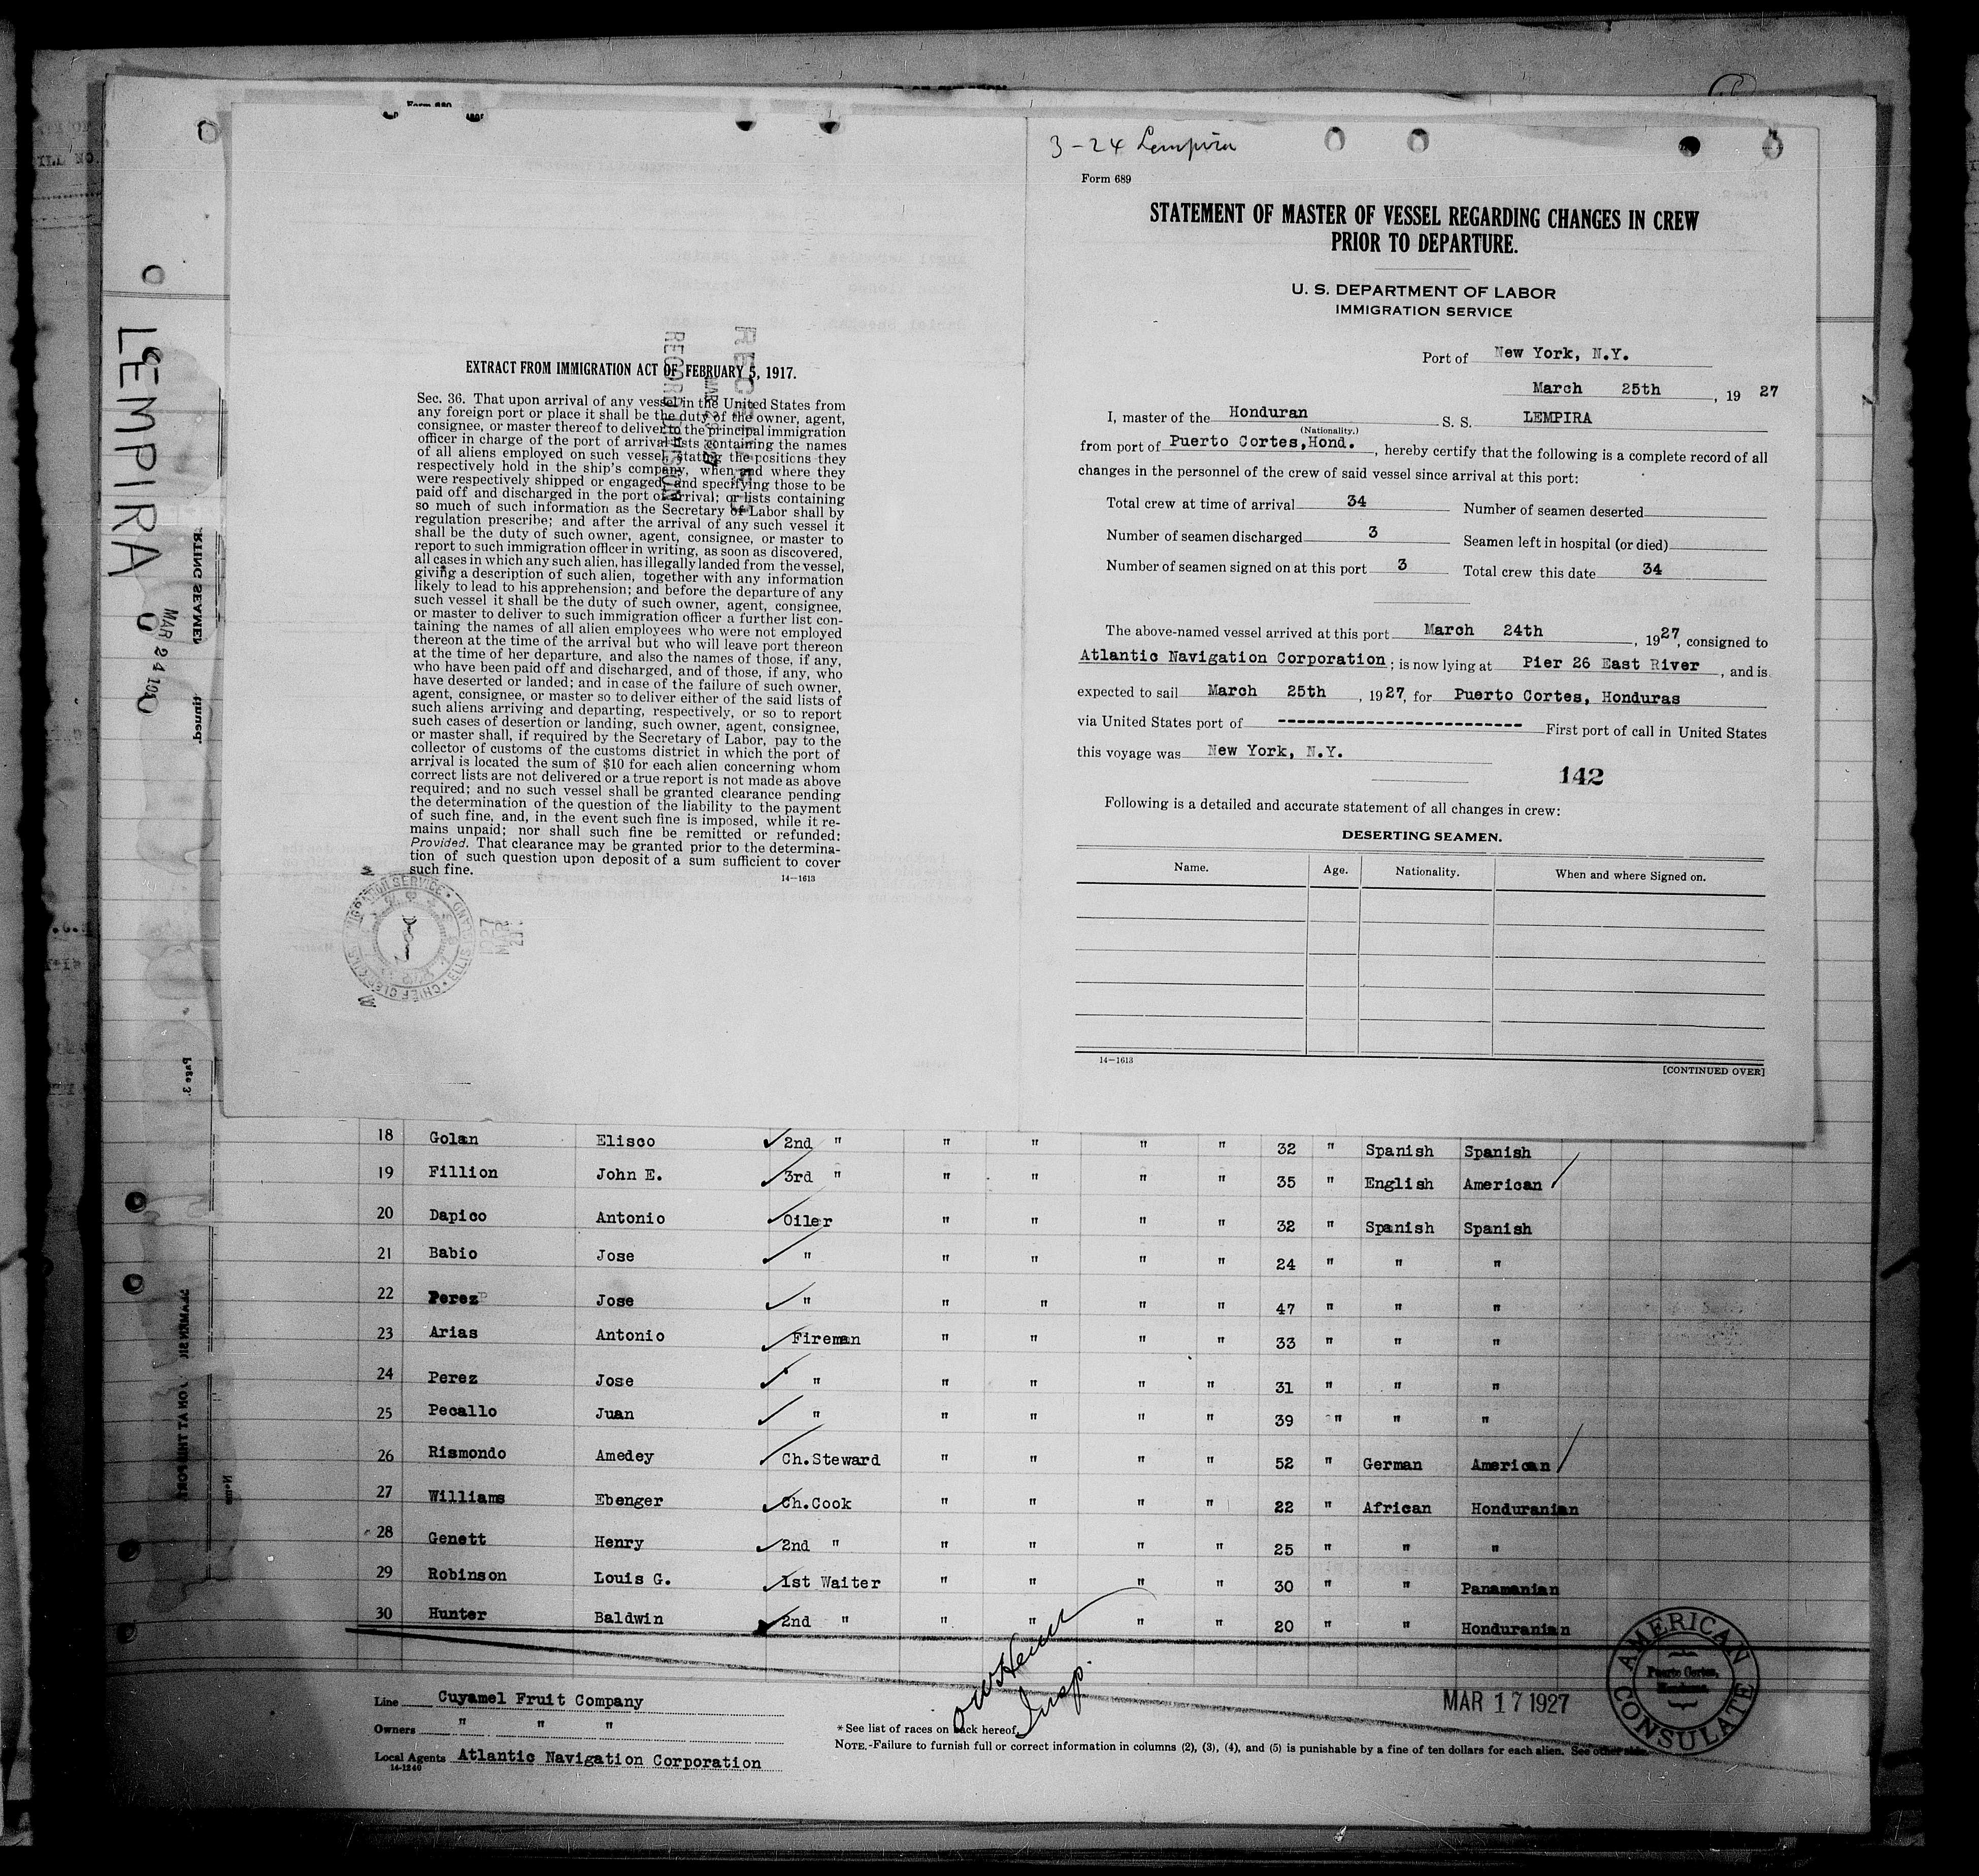 3-24 Lempira
Form 689
STATEMENT OF MASTER OF VESSEL REGARDING CHANGES IN CREW
PRIOR TO DEPARTURE.
U. S. DEPARTMENT OF LABOR
IMMIGRATION SERVICE
Port of New York, N.Y.
March 25th, 1927
I, master of the Honduran S. S. LEMPIRA
(Nationality.)
from port of Puerto Cortes, Hond., hereby certify that the following is a complete record of all
changes in the personnel of the crew of said vessel since arrival at this port:
Total crew at time of arrival 34 Number of seamen deserted
Number of seamen discharged 3 Seamen left in hospital (or died)
Number of seamen signed on at this port 3 Total crew this date 34
The above-named vessel arrived at this port March 24th, 1927, consigned to
Atlantic Navigation Corporation; is now lying at Pier 26 East River, and is
expected to sail March 25th, 1927, for Puerto Cortes, Honduras
via United States port of ------------------------- First port of call in United States
this voyage was New York, N.Y.
142
Following is a detailed and accurate statement of all changes in crew:
DESERTING SEAMEN.
Name. Age. Nationality. When and where Signed on.
14—1613
[CONTINUED OVER]
EXTRACT FROM IMMIGRATION ACT OF FEBRUARY 5, 1917.
Sec. 36. That upon arrival of any vessel in the United States from
any foreign port or place it shall be the duty of the owner, agent,
consignee, or master thereof to deliver to the principal immigration
officer in charge of the port of arrival lists containing the names
of all aliens employed on such vessel, stating the positions they
respectively hold in the ship's company, when and where they
were respectively shipped or engaged, and specifying those to be
paid off and discharged in the port of arrival; or lists containing
so much of such information as the Secretary of Labor shall by
regulation prescribe; and after the arrival of any such vessel it
shall be the duty of such owner, agent, consignee, or master to
report to such immigration officer in writing, as soon as discovered,
all cases in which any such alien has illegally landed from the vessel,
giving a description of such alien, together with any information
likely to lead to his apprehension; and before the departure of any
such vessel it shall be the duty of such owner, agent, consignee,
or master to deliver to such immigration officer a further list con-
taining the names of all alien employees who were not employed
thereon at the time of the arrival but who will leave port thereon
at the time of her departure, and also the names of those, if any,
who have been paid off and discharged, and of those, if any, who
have deserted or landed; and in case of the failure of such owner,
agent, consignee, or master so to deliver either of the said lists of
such aliens arriving and departing, respectively, or so to report
such cases of desertion or landing, such owner, agent, consignee,
or master shall, if required by the Secretary of Labor, pay to the
collector of customs of the customs district in which the port of
arrival is located the sum of $10 for each alien concerning whom
correct lists are not delivered or a true report is not made as above
required; and no such vessel shall be granted clearance pending
the determination of the question of the liability to the payment
of such fine, and, in the event such fine is imposed, while it re-
mains unpaid; nor shall such fine be remitted or refunded:
Provided. That clearance may be granted prior to the determina-
tion of such question upon deposit of a sum sufficient to cover
such fine.
14—1613
RECEIVED
RECORD DIVISION
CHIEF CLERK ELLIS ISLAND
LEMPIRA
MAR 24
RTING SEAMEN
tinued.
Page 3
18 Golan Elisco 2nd " " " " " 32 " Spanish Spanish
19 Fillion John E. 3rd " " " " " 35 " English American
20 Dapico Antonio Oiler " " " " 32 " Spanish Spanish
21 Babio Jose " " " " " 24 " " "
22 Perez Jose " " " " " 47 " " "
23 Arias Antonio Fireman " " " " 33 " " "
24 Perez Jose " " " " " 31 " " "
25 Pecallo Juan " " " " " 39 " " "
26 Rismondo Amedey Ch.Steward " " " " 52 " German American
27 Williams Ebenger Ch.Cook " " " " 22 " African Honduranian
28 Genett Henry 2nd " " " " " 25 " " "
29 Robinson Louis G. 1st Waiter " " " " 30 " " Panamanian
30 Hunter Baldwin 2nd " " " " " 20 " " Honduranian
Insp.
Line Cuyamel Fruit Company
Owners " " "
Local Agents Atlantic Navigation Corporation
14-1240
* See list of races on back hereof.
NOTE.-Failure to furnish full or correct information in columns (2), (3), (4), and (5) is punishable by a fine of ten dollars for each alien. See other side.
MAR 17 1927
AMERICAN CONSULATE
Puerto Cortes,
Honduras.